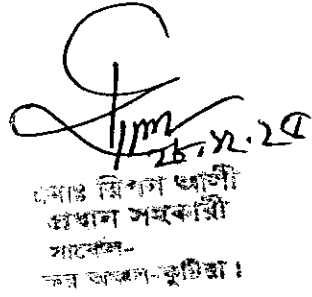 মোঃ রিপন আলী
প্রধান সহকারী
সার্কেল-
কর অঞ্চল-কুষ্টিয়া।